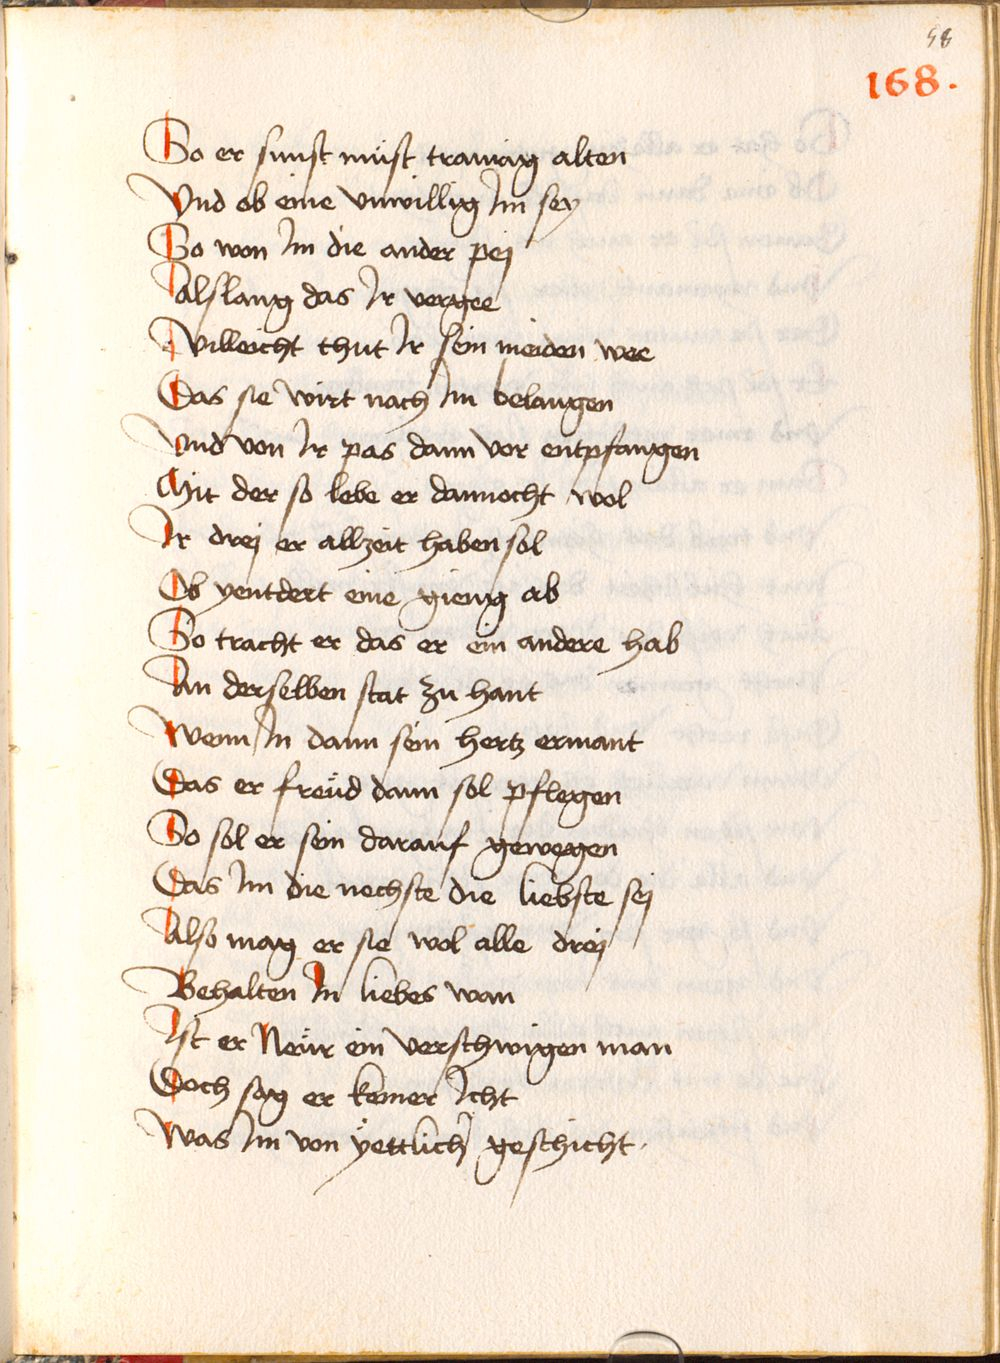 58
168.
So er sunst můst trawrig alten
Vnd ob eine vnwillig Im sey
So won Im die ander pej
Alslang das Ir vergee
Villeicht thut Ir sein meiden wee
Das sie wirt nach Im belangen
Vnd von Ir pas dann vor entpfangen
Mit der so lebe er dannocht wol
Ir drej er allzeit haben sol
Ob yentdert eine gieng ab
So tracht er das er ein andere hab
An derselben stat zu hant
Wenn In dann sein hertz ermant
Das er freüd dann sol pflegen
So sol er sein darauf gewegen
Das Im die nechste die liebste sej
Also mag er sie wol alle drej
Behalten In liebes wan
Ist er Neür ein verschwigen man
Doch sag er keiner Icht
Was Im von yettlich geschicht.